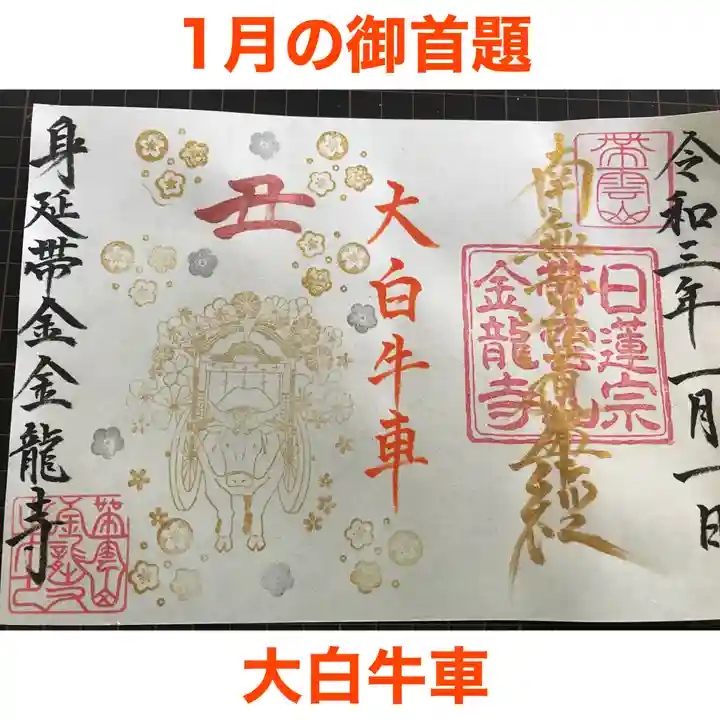 1月の御首題
令和三年一月一日
帯雲山
南無妙法蓮華経
日蓮宗
帯雲山
金龍寺
大白牛車
丑
身延帯金金龍寺
大白牛車